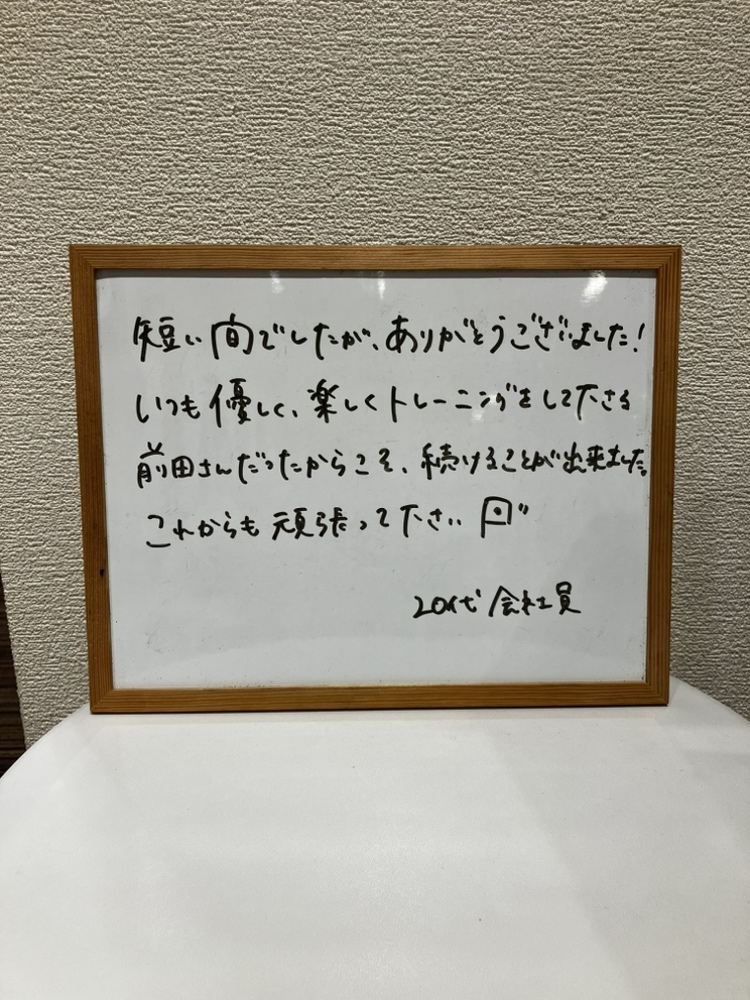 短い間でしたが、ありがとうございました!
いつも優しく、楽しくトレーニングをして下さる
前田さんだったからこそ、続けることが出来ました。
これからも頑張って下さい
20代 会社員